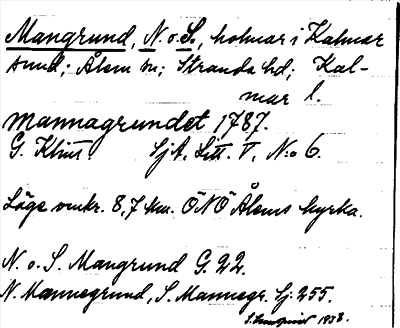 Mangrund, N. o. S., holmar i Kalmar
sund; Ålem sn; Stranda hd; Kal-
mar l.
Mannagrundet 1787.
G. Klint. Sjk. Litt. V. N:o 6.
Läge omkr. 8,7 km. ÖNÖ Ålems kyrka.
N. o. S. Mangrund G. 22.
N. Mannegrund, S. Mannegr. Sj. 255.
1938.